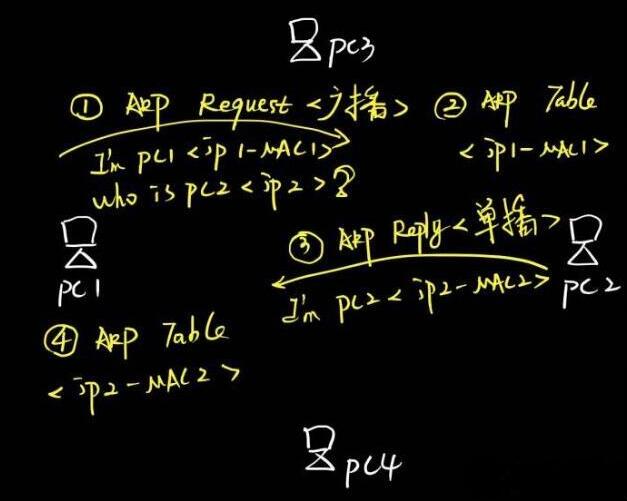 PC3
① ARP Request <广播>
I'm PC1 <ip1-MAC1>
who is PC2 <ip2>?
② ARP Table
<ip1-MAC1>
PC1
③ ARP Reply <单播>
I'm PC2 <ip2-MAC2>
PC2
④ ARP Table
<ip2-MAC2>
PC4